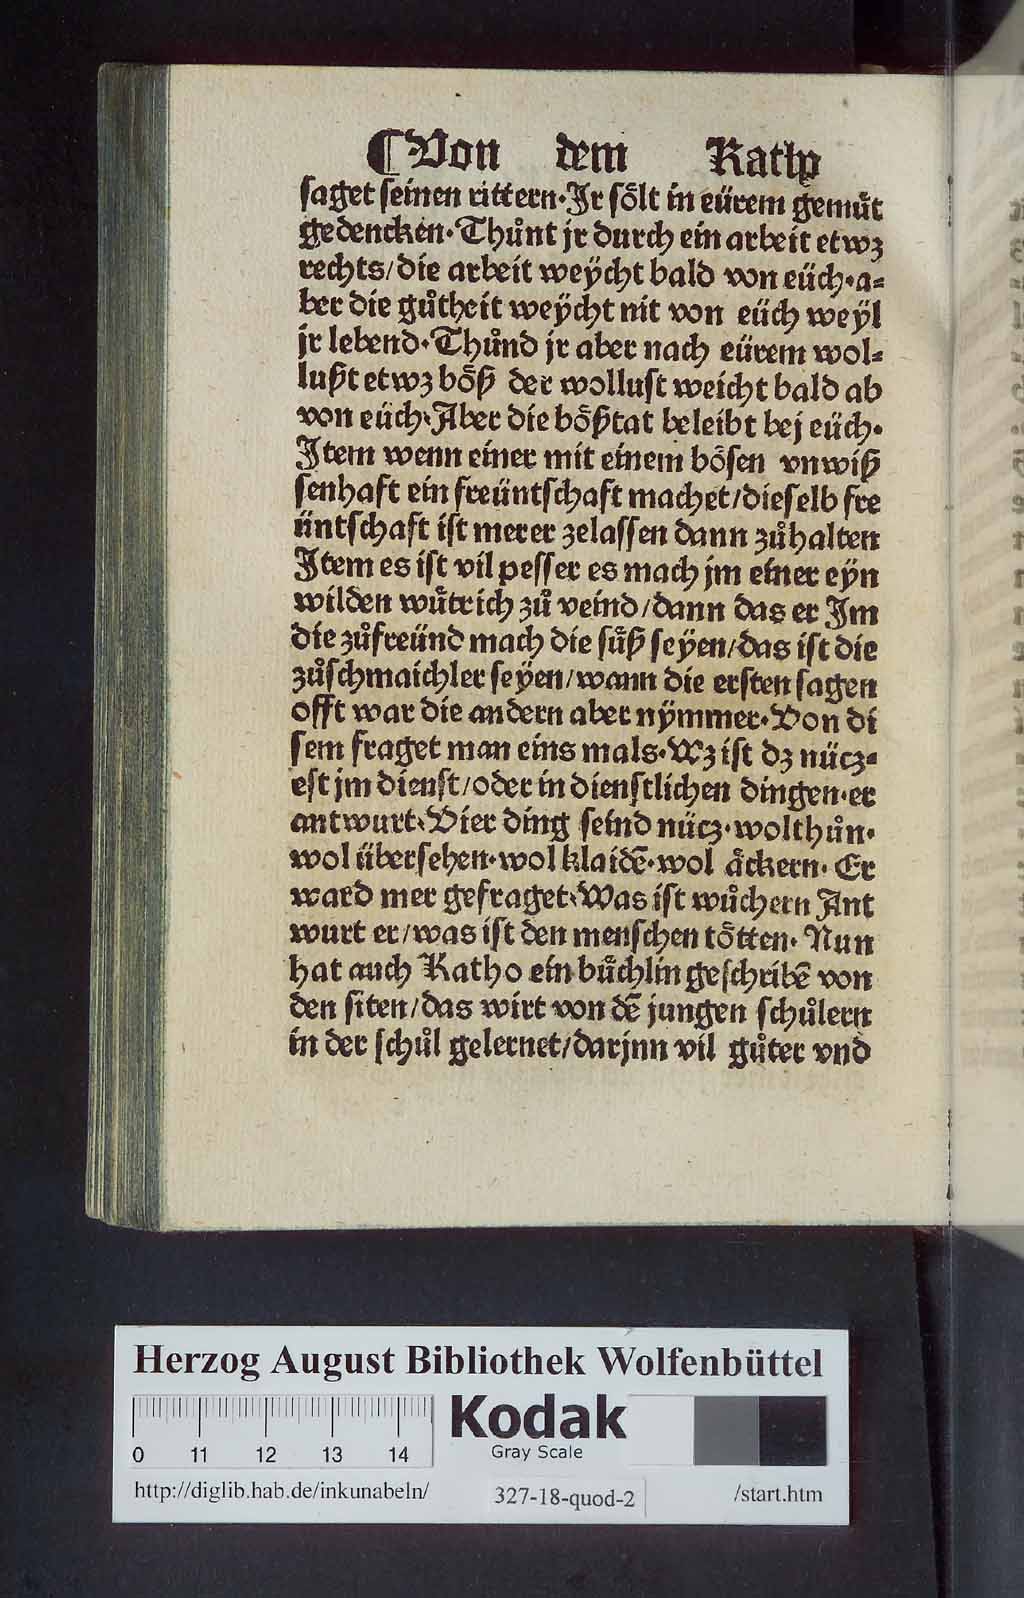 ¶Von dem Katho
saget seinen rittern·Jr sölt in eürem gemuͤt
gedencken·Thuͦnt jr durch ein arbeit etwz
rechts/die arbeit weÿcht bald von eüch·a⸗
ber die guͦtheit weÿcht nit von eüch weÿl
jr lebend·Thuͦnd jr aber nach eürem wol⸗
lußt etwz böß der wollust weicht bald ab
von eüch·Aber die bößtat beleibt bej eüch·
Jtem wenn einer mit einem bösen vnwiß
senhaft ein freüntschaft machet/dieselb fre
üntschaft ist merer zelassen dann zuͦhalten
Jtem es ist vil pesser es mach jm einer eÿn
wilden wuͤtrich zuͦ veind/dann das er Jm
die zuͦfreünd mach die suͤß seÿen/das ist die
zuͦschmaichler seÿen/wann die ersten sagen
offt war die andern aber nÿmmer·Von di
sem fraget man eins mals·Wz ist dz nücz⸗
est jm dienst/oder in dienstlichen dingen·er
antwurt·Vier ding seind nücz·wolthuͦn·
wol übersehen·wol klaidē·wol äckern·Er
ward mer gefraget·Was ist wuͦchern Ant
wurt er/was ist den menschen tötten·Nun
hat auch Katho ein buͤchlin geschribē von
den siten/das wirt von dē jungen schuͦlern
in der schuͦl gelernet/darjnn vil guͦter vnd
Herzog August Bibliothek Wolfenbüttel
0 11 12 13 14
Kodak
Gray Scale
http://diglib.hab.de/inkunabeln/ 327-18-quod-2 /start.htm